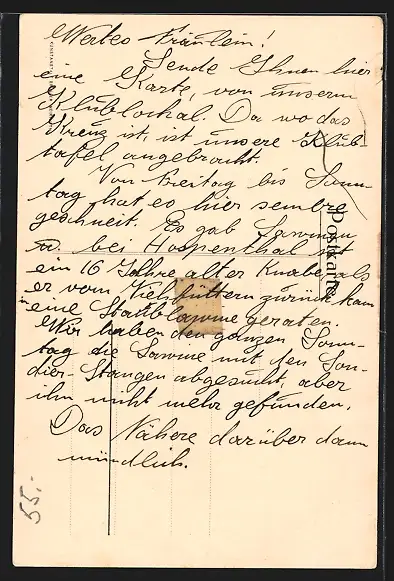 Wertes Fräulein!
Sende Ihnen hier
eine Karte, von unserm
Klublochal. Da wo das
Kreuz ist, ist unsere Klub-
tafel angebracht.
Von Freitag bis Sonn-
tag hat es hier sembre
geschneit. Es gab Lawinen
u. bei Hospenthal ist
ein 16 Jahre alter Knabe als
er vom Viehfüttern zurück kam
in eine Staublawine geraten.
Wir haben den ganzen Sonn-
tag die Lawine mit den Son-
dier-Stangen abgesucht, aber
ihn nicht mehr gefunden.
Das Nähere darüber dann
mündlich.
Postkarte
55.-